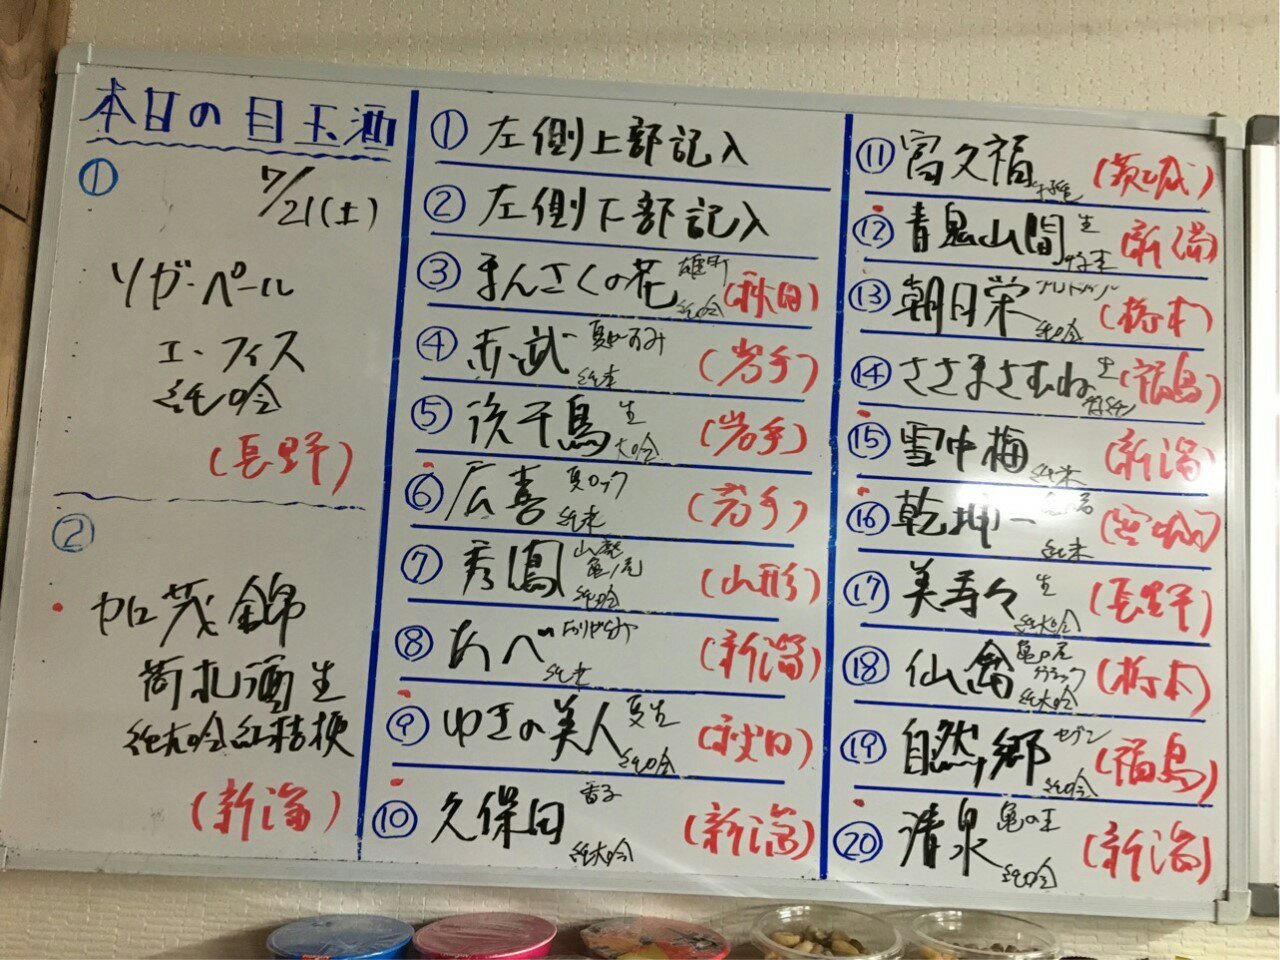 本日の目玉酒
①
7/21(土)
ソガ・ペール
エ・フィス
純吟
(長野)
②
加茂錦
荷札酒生
純大吟紅桔梗
(新潟)
① 左側上部記入
② 左側下部記入
③ まんさくの花 雄町 純吟 (秋田)
④ 赤武 夏がすみ 純米 (岩手)
⑤ 浜千鳥 生 大吟 (岩手)
⑥ 広喜 夏ロック 純米 (岩手)
⑦ 秀鳳 山廃 亀ノ尾 純吟 (山形)
⑧ あべ 純米 (新潟)
⑨ ゆきの美人 夏生 純吟 (秋田)
⑩ 久保田 純大吟 (新潟)
⑪ 富久福 (茨城)
⑫ 青鬼山間 生 (新潟)
⑬ 朝日栄 純吟 (栃木)
⑭ ささまさむね 生 (福島)
⑮ 雪中梅 純米 (新潟)
⑯ 乾坤一 純米 (宮城)
⑰ 美寿々 生 純大吟 (長野)
⑱ 仙禽 亀ノ尾 純大吟 (栃木)
⑲ 自然郷 セブン 純吟 (福島)
⑳ 清泉 亀の王 純吟 (新潟)